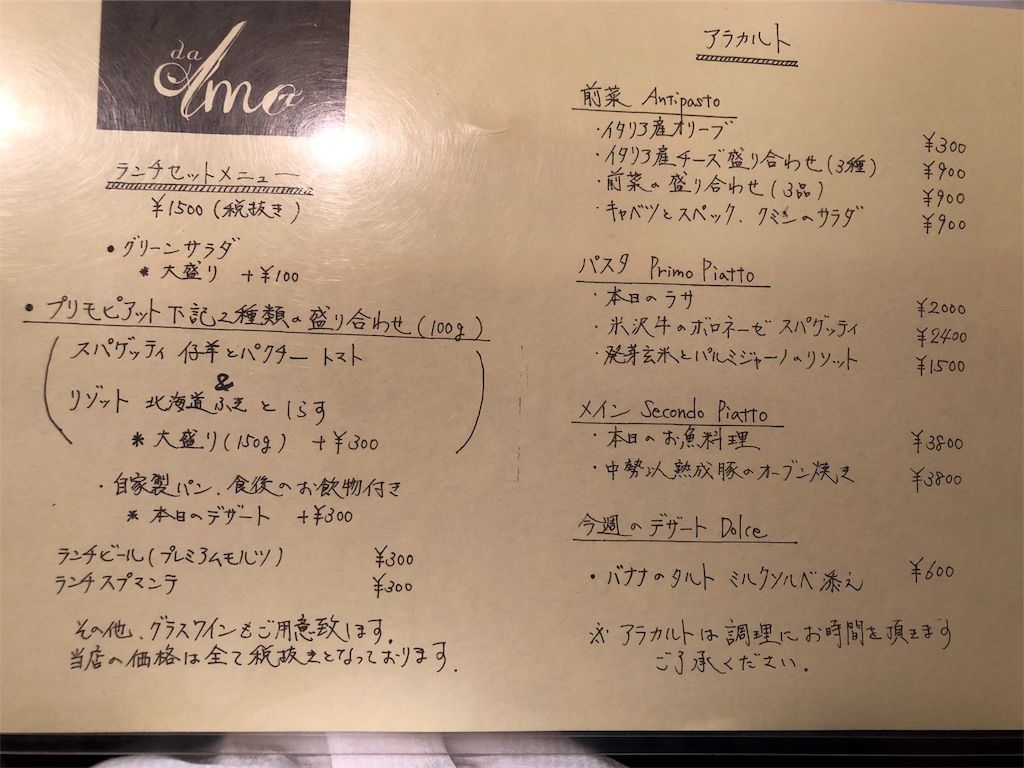 da
Amo
ランチセットメニュー
¥1500(税抜き)
• グリーンサラダ
* 大盛り +¥100
• プリモピアット下記2種類の盛り合わせ(100g)
スパゲッティ 仔羊とパクチー トマト
&
リゾット 北海道ふきとしらす
* 大盛り(150g) +¥300
・自家製パン、食後のお飲物付き
* 本日のデザート +¥300
ランチビール(プレミアムモルツ) ¥300
ランチスプマンテ ¥300
その他、グラスワインもご用意致します。
当店の価格は全て税抜きとなっております。
アラカルト
前菜 Antipasto
・イタリア産オリーブ ¥300
・イタリア産チーズ盛り合わせ(3種) ¥900
・前菜の盛り合わせ(3品) ¥900
・キャベツとスペック、クミンのサラダ ¥900
パスタ Primo Piatto
・本日のラサ ¥2000
・米沢牛のボロネーゼ スパゲッティ ¥2400
・発芽玄米とパルミジャーノのリゾット ¥1500
メイン Secondo Piatto
・本日のお魚料理 ¥3800
・中勢以熟成豚のオーブン焼き ¥3800
今週のデザート Dolce
・バナナのタルト ミルクソルベ添え ¥600
※ アラカルトは調理にお時間を頂きます
ご了承ください。